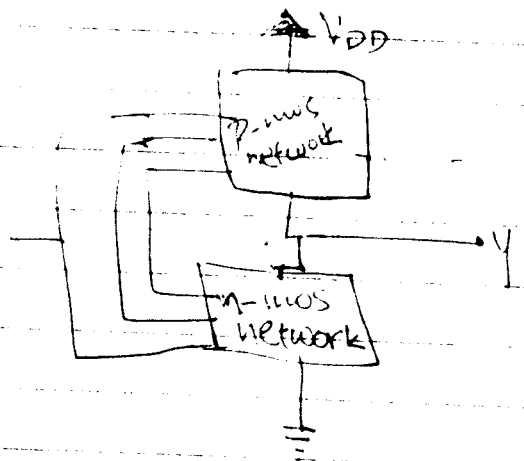 VDD
p-mos
network
Y
n-mos
network